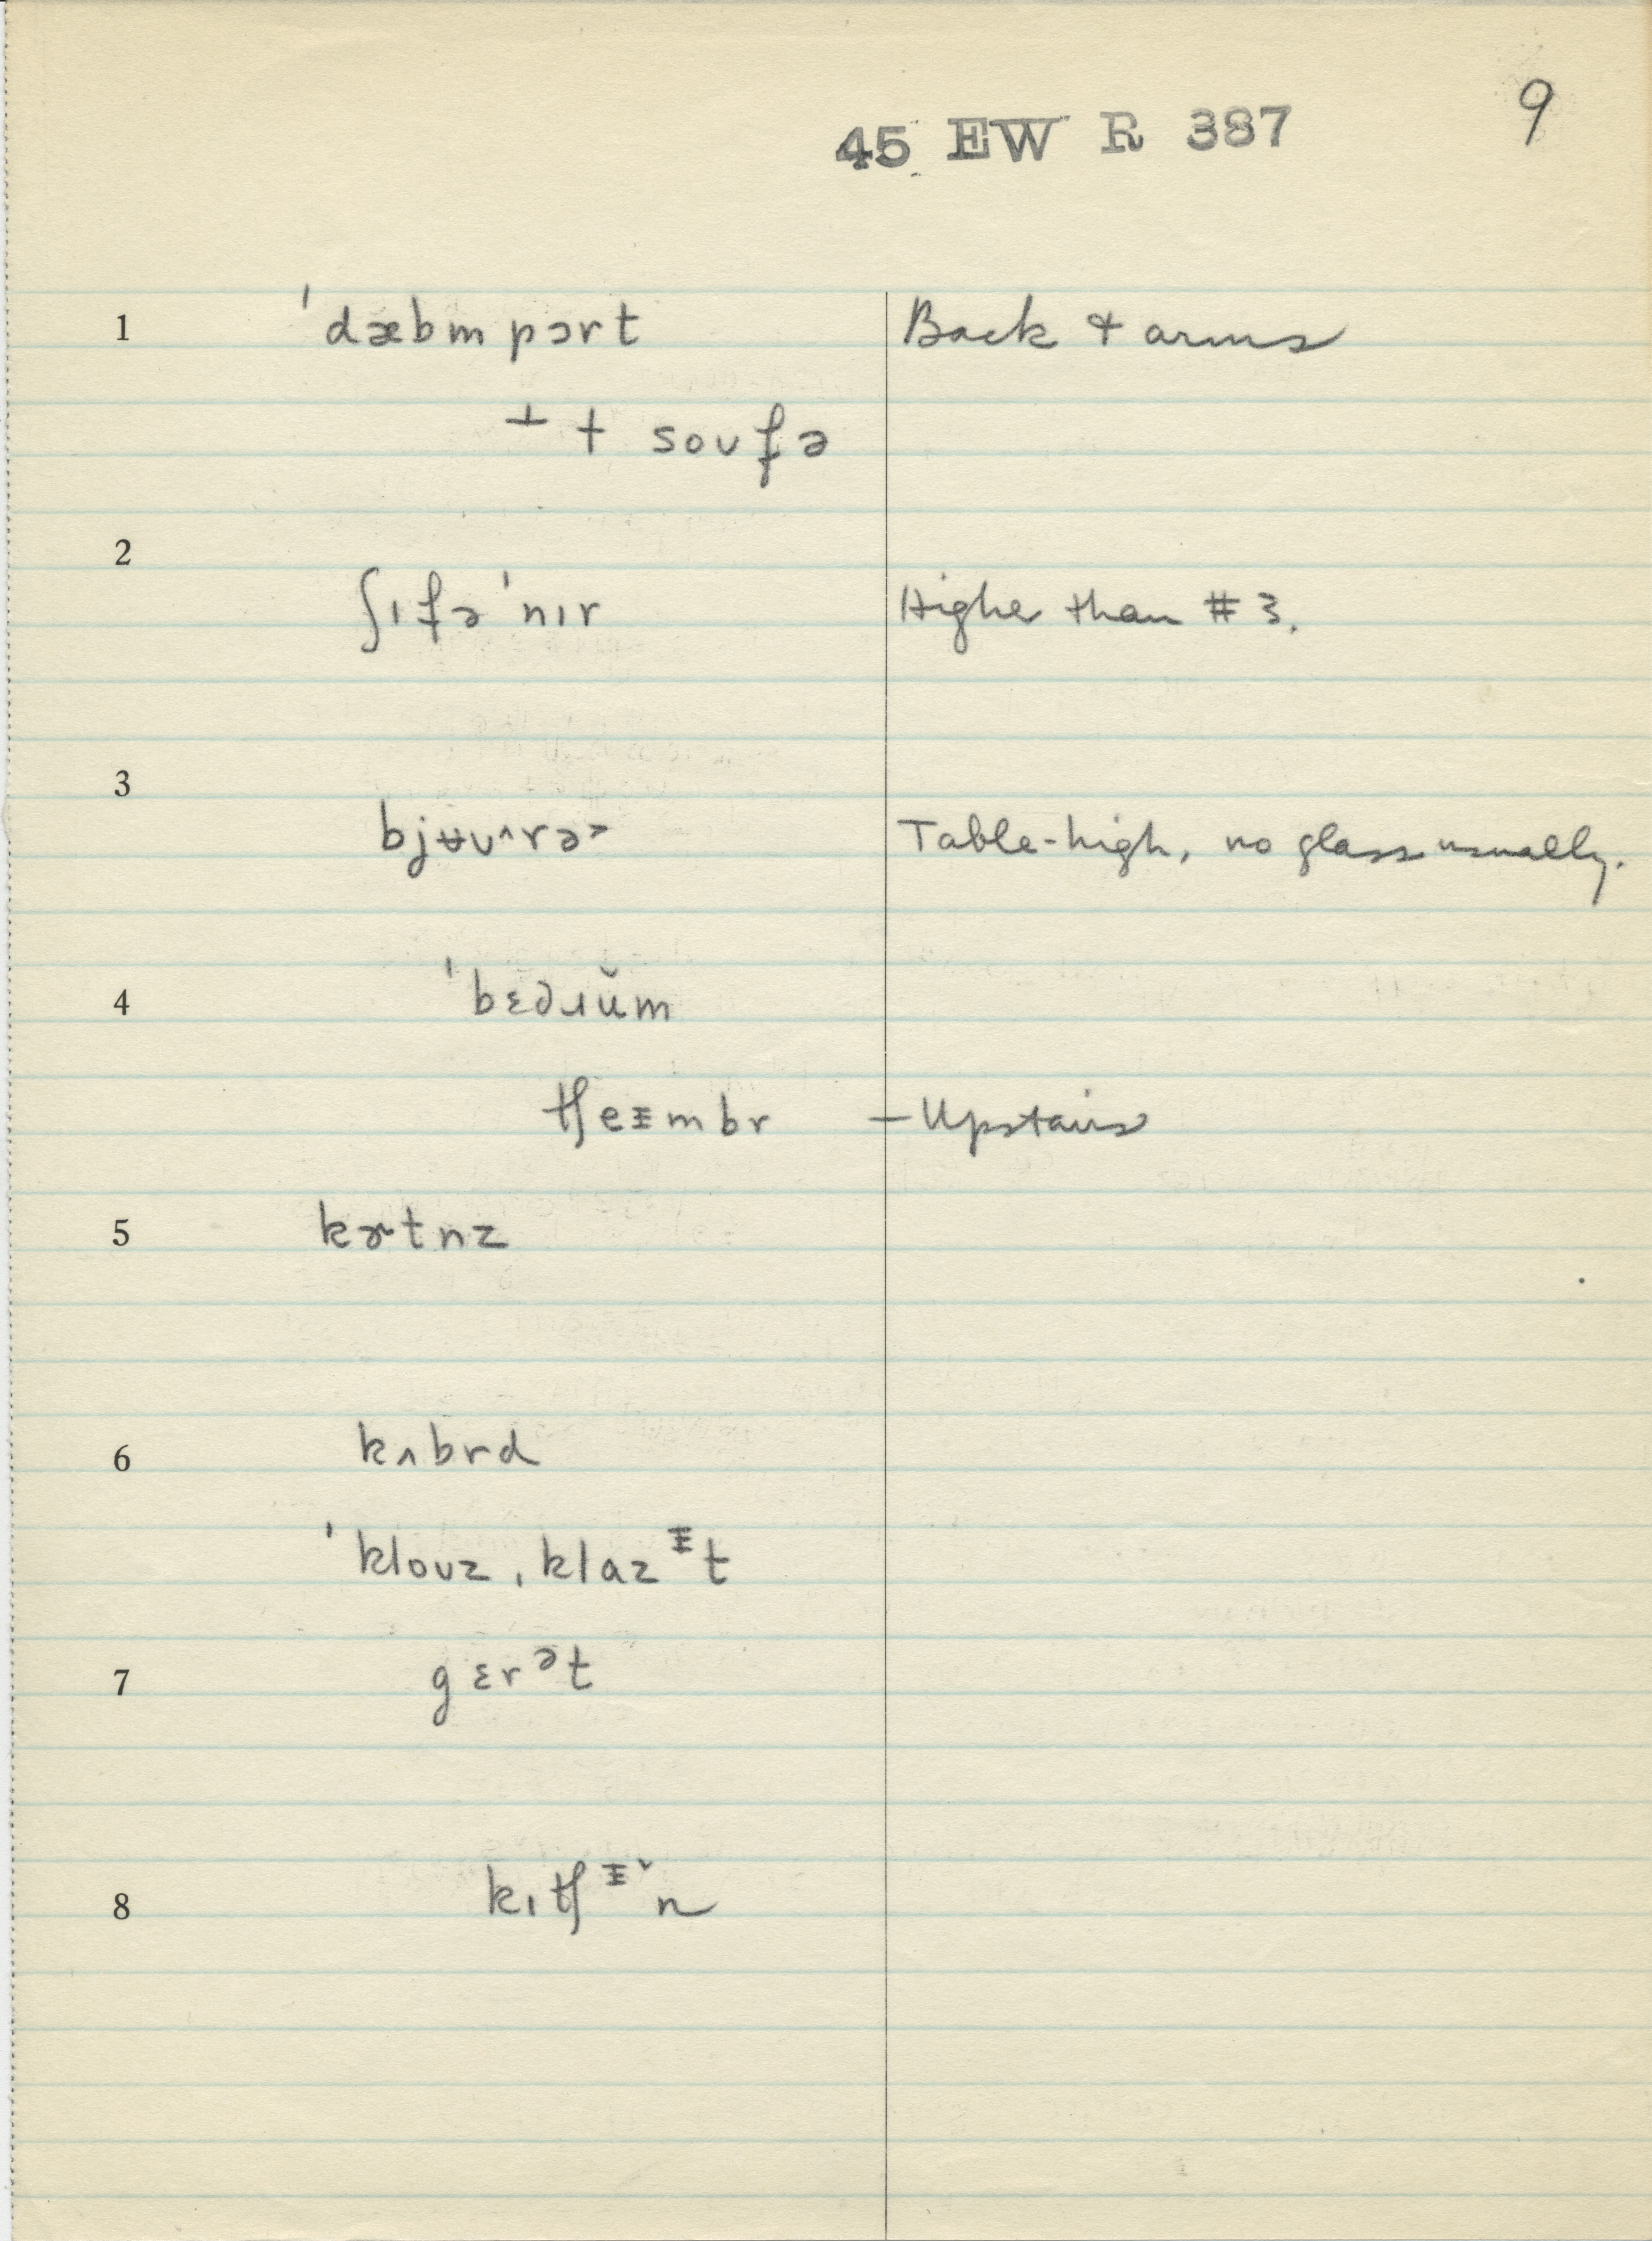 45 EW R 387
9
1 ˈdæbmpɔrt Back & arms
⊥ † soʊfə
2 ʃɪfəˈnɪr Higher than #3.
3 bjʉʊ^rə> Table-high, no glass usually.
4 ˈbɛdɹŭm
tʃeᵻmbr – Upstairs
5 kɚtnz
6 kʌbrd
ˈkloʊzˌklazᵻt
7 gɛrᵊt
8 kɪtʃᵻˇn